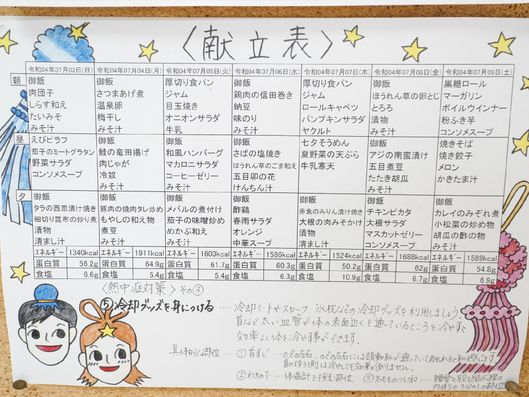 〈献立表〉
令和04年07月03日(日) 令和04年07月04日(月) 令和04年07月05日(火) 令和04年07月06日(水) 令和04年07月07日(木) 令和04年07月08日(金) 令和04年07月09日(土)
朝
御飯 御飯 厚切り食パン 御飯 厚切り食パン 御飯 黒糖ロール
肉団子 さつまあげ煮 ジャム 鶏肉の信田巻き ジャム ほうれん草の卵とじ マーガリン
しらす和え 温泉卵 目玉焼き 納豆 ロールキャベツ とろろ ボイルウインナー
たいみそ 梅干し オニオンサラダ 味のり パンプキンサラダ 漬物 粉ふき芋
みそ汁 みそ汁 牛乳 みそ汁 ヤクルト みそ汁 コンソメスープ
昼
えびピラフ 御飯 御飯 御飯 七夕そうめん 御飯 焼きそば
茄子のミートグラタン 鮭の竜田揚げ 和風ハンバーグ さばの塩焼き 夏野菜の天ぷら アジの南蛮漬け 焼き餃子
野菜サラダ 肉じゃが マカロニサラダ ほうれん草のごま和え 牛乳寒天 五目煮豆 メロン
コンソメスープ 冷奴 コーヒーゼリー 五目卯の花 たたき胡瓜 かきたま汁
みそ汁 けんちん汁 みそ汁
夕
御飯 御飯 御飯 御飯 御飯 御飯 御飯
タラの西京漬け焼き 豚肉の焼肉タレ炒め メバルの煮付け 酢鶏 赤魚のみりん漬け焼き チキンピカタ カレイのみぞれ煮
細切り昆布の炒り煮 もやしの和え物 茄子の味噌炒め 春雨サラダ 大根の肉みそかけ 大根サラダ 小松菜の炒め物
漬物 煮豆 めかぶ和え オレンジ 漬物 マスカットゼリー 胡瓜の酢の物
清まし汁 みそ汁 みそ汁 中華スープ 清まし汁 コンソメスープ みそ汁
エネルギー 1340kcal エネルギー 1911kcal エネルギー 1603kcal エネルギー 1586kcal エネルギー 1524kcal エネルギー 1688kcal エネルギー 1589kcal
蛋白質 56.2g 蛋白質 64.9g 蛋白質 61.7g 蛋白質 60.3g 蛋白質 50.2g 蛋白質 62g 蛋白質 54.8g
食塩 6.9g 食塩 5.4g 食塩 5.4g 食塩 6.3g 食塩 10.9g 食塩 6.7g 食塩 6.9g
〈熱中症対策〉その③
⑤冷却グッズを身につける
冷却シートやスカーフ、氷枕などの冷却グッズを利用しましょう
首など太い血管が体の表面近くを通っているところを冷やすと
効率よく体を冷やす事ができます。
具体的な部位
①首すじ
②わきの下
体温計を挟む部位